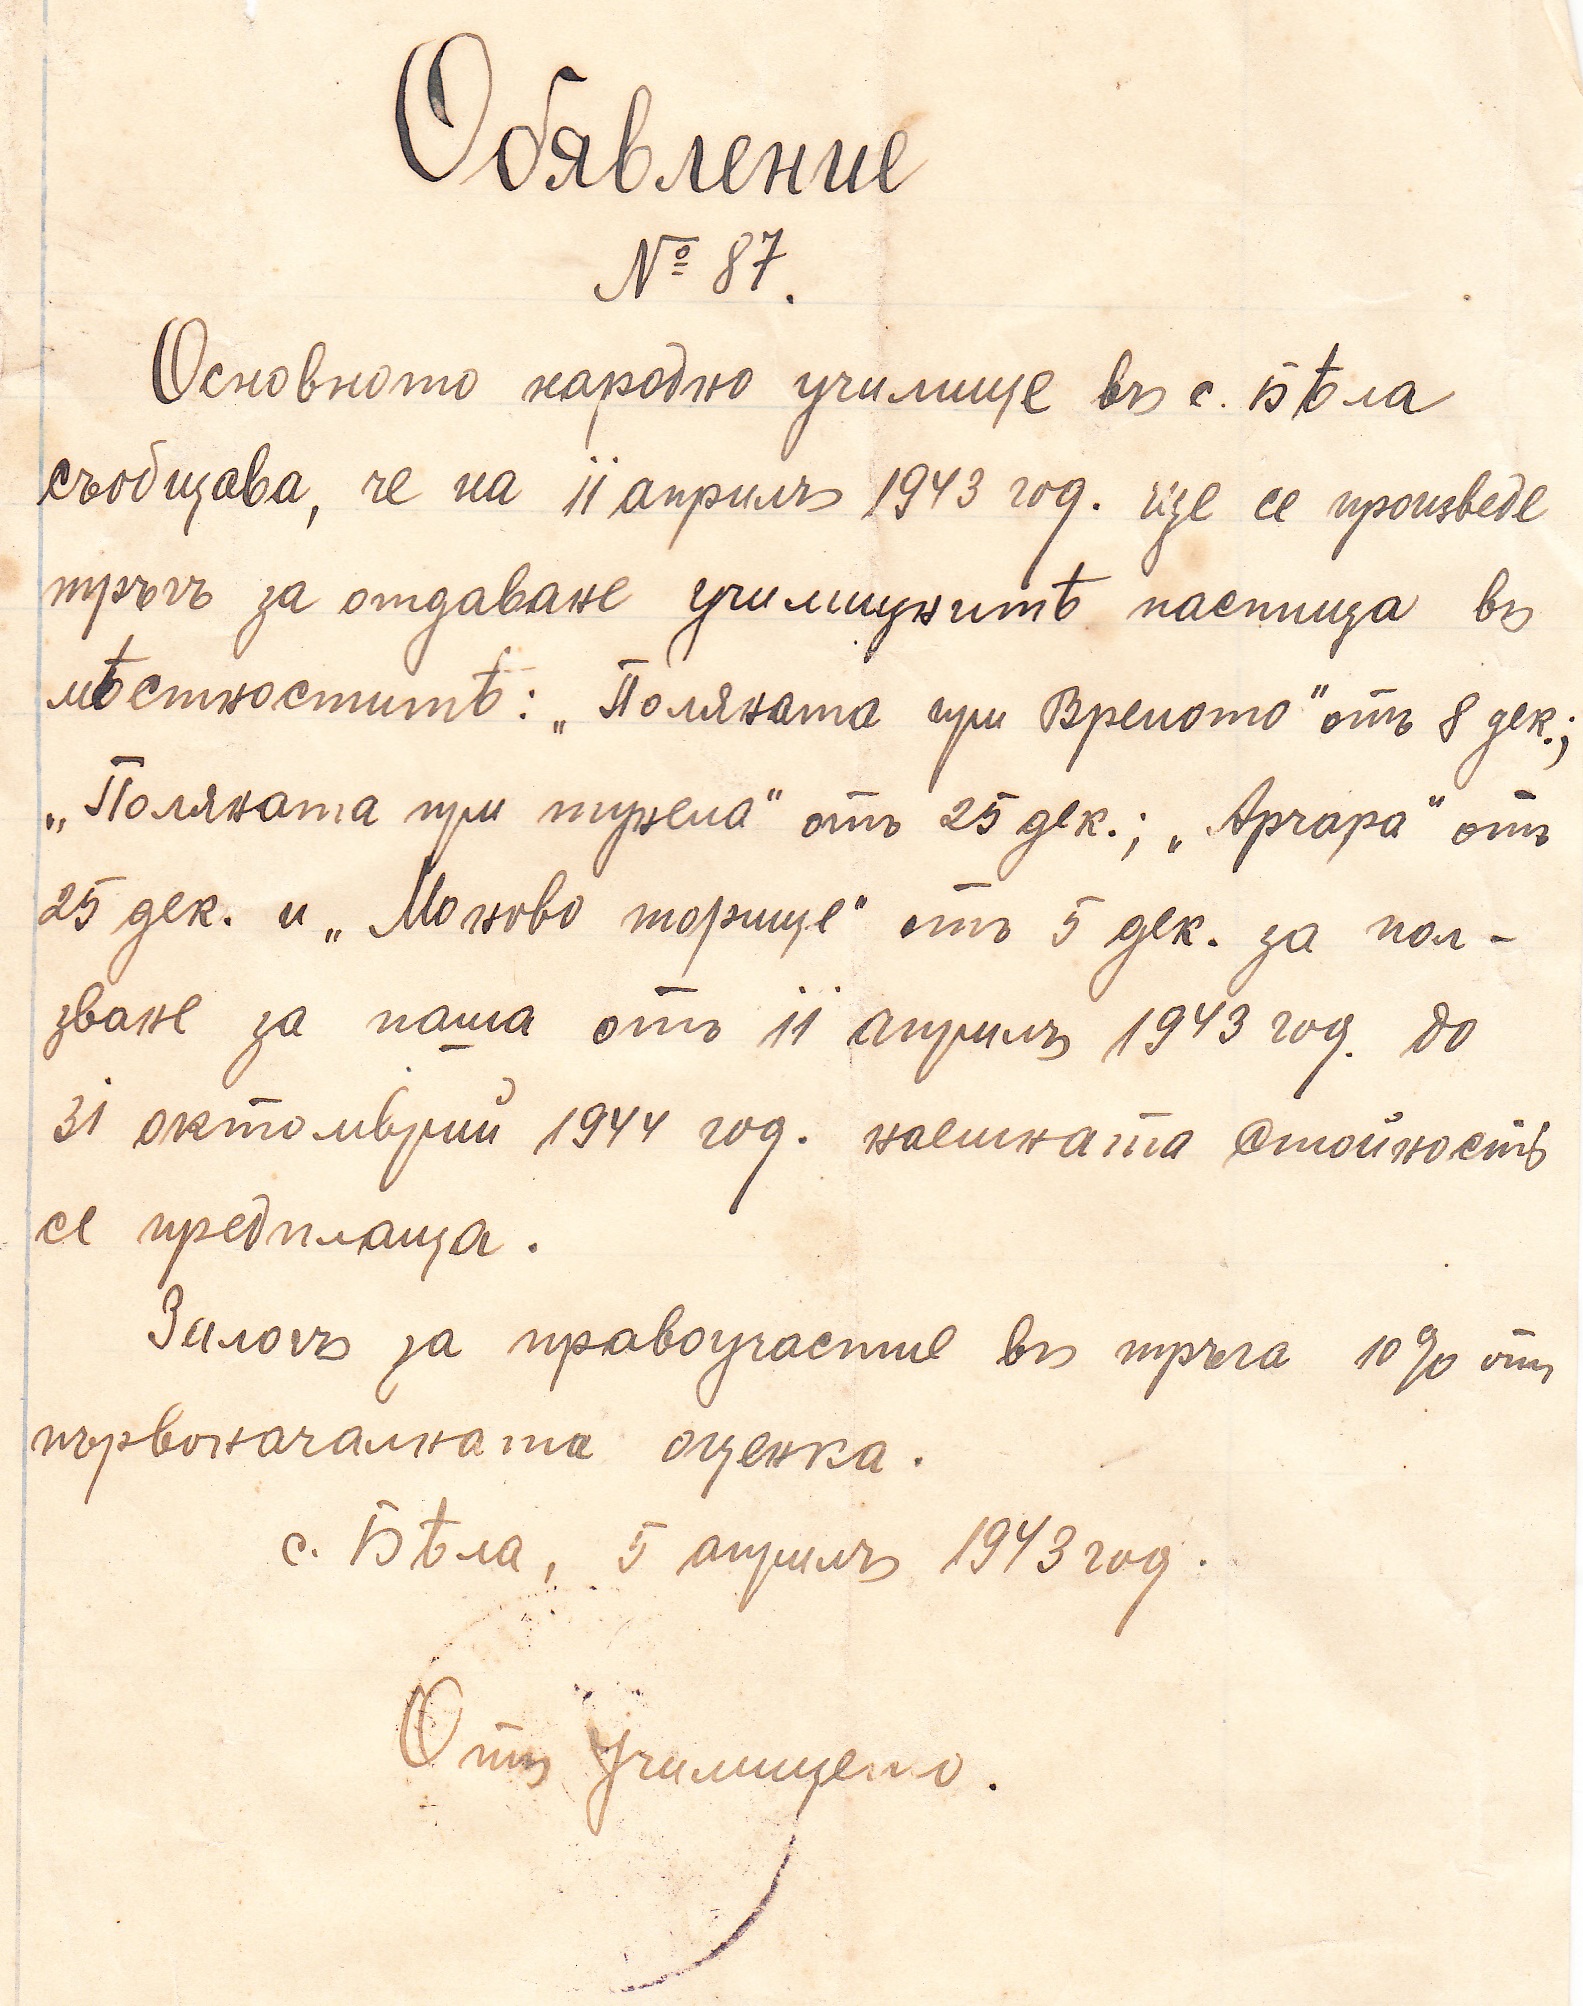 Обявление
№ 87.
Основното народно училище въ с. Бѣла
съобщава, че на 11 априлъ 1943 год. ще се произведе
търгъ за отдаване училищнитѣ пасища въ
мѣстноститѣ: „Поляната при Врелото" отъ 8 дек.;
„Поляната при тунела" отъ 25 дек.; „Арчара" отъ
25 дек. и „Моново торище" отъ 5 дек. за пол-
зване за паша отъ 11 априлъ 1943 год. до
31 октомврий 1944 год. наемната стойность
се предплаща.
Залогъ за правоучастие въ търга 10% отъ
първоначалната оценка.
с. Бѣла, 5 априлъ 1943 год.
Отъ Училището.